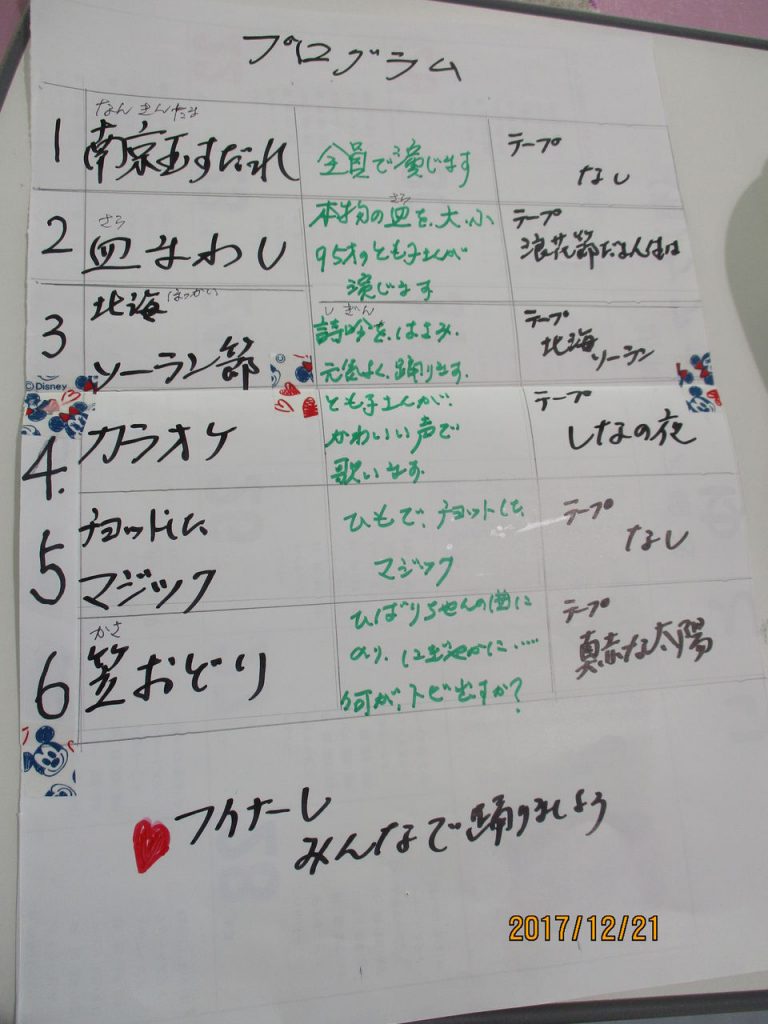 プログラム
1
なんきんたま
南京玉すだれ
全員で演じます
テープ
なし
2
さら
皿まわし
さら
本物の皿を、大、小
95才のとも子さんが
演じます
テープ
浪花節だよ人生は
3
北海 ほっかい
ソーラン節
しぎん
詩吟を、はさみ、
元気よく、踊ります。
テープ
北海
ソーラン
©Disney
4.
カラオケ
とも子さんが、
かわいい声で
歌います。
テープ
しなの夜
5
チョットした
マジック
ひもで、チョットした
マジック
テープ
なし
6
かさ
笠おどり
ひばりちゃんの曲に
のり、にぎやかに……
何が、トビ出すか?
テープ
真赤な太陽
フィナーレ
みんなで踊りましょう
2017/12/21